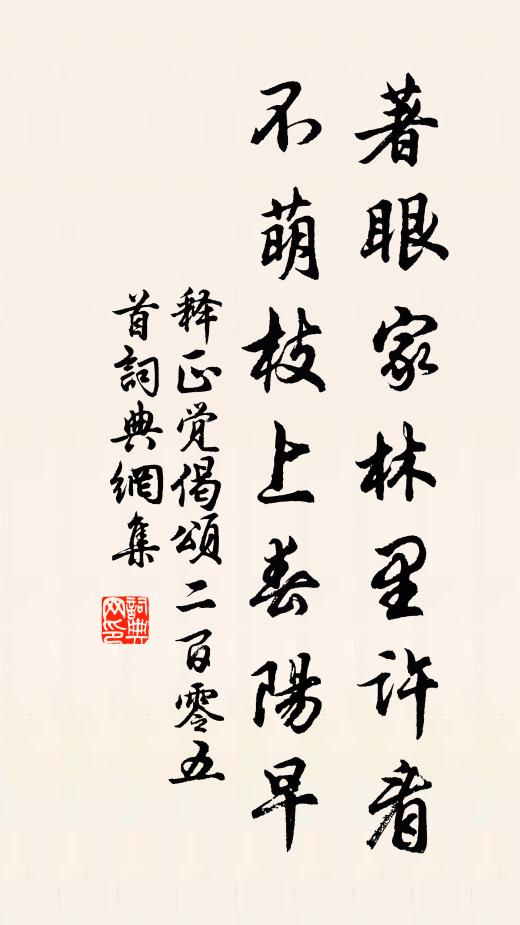 著眼家林里許看
不萌枝上春陽早
释正觉偈頌二百零五
首詞典網集
詞典网印